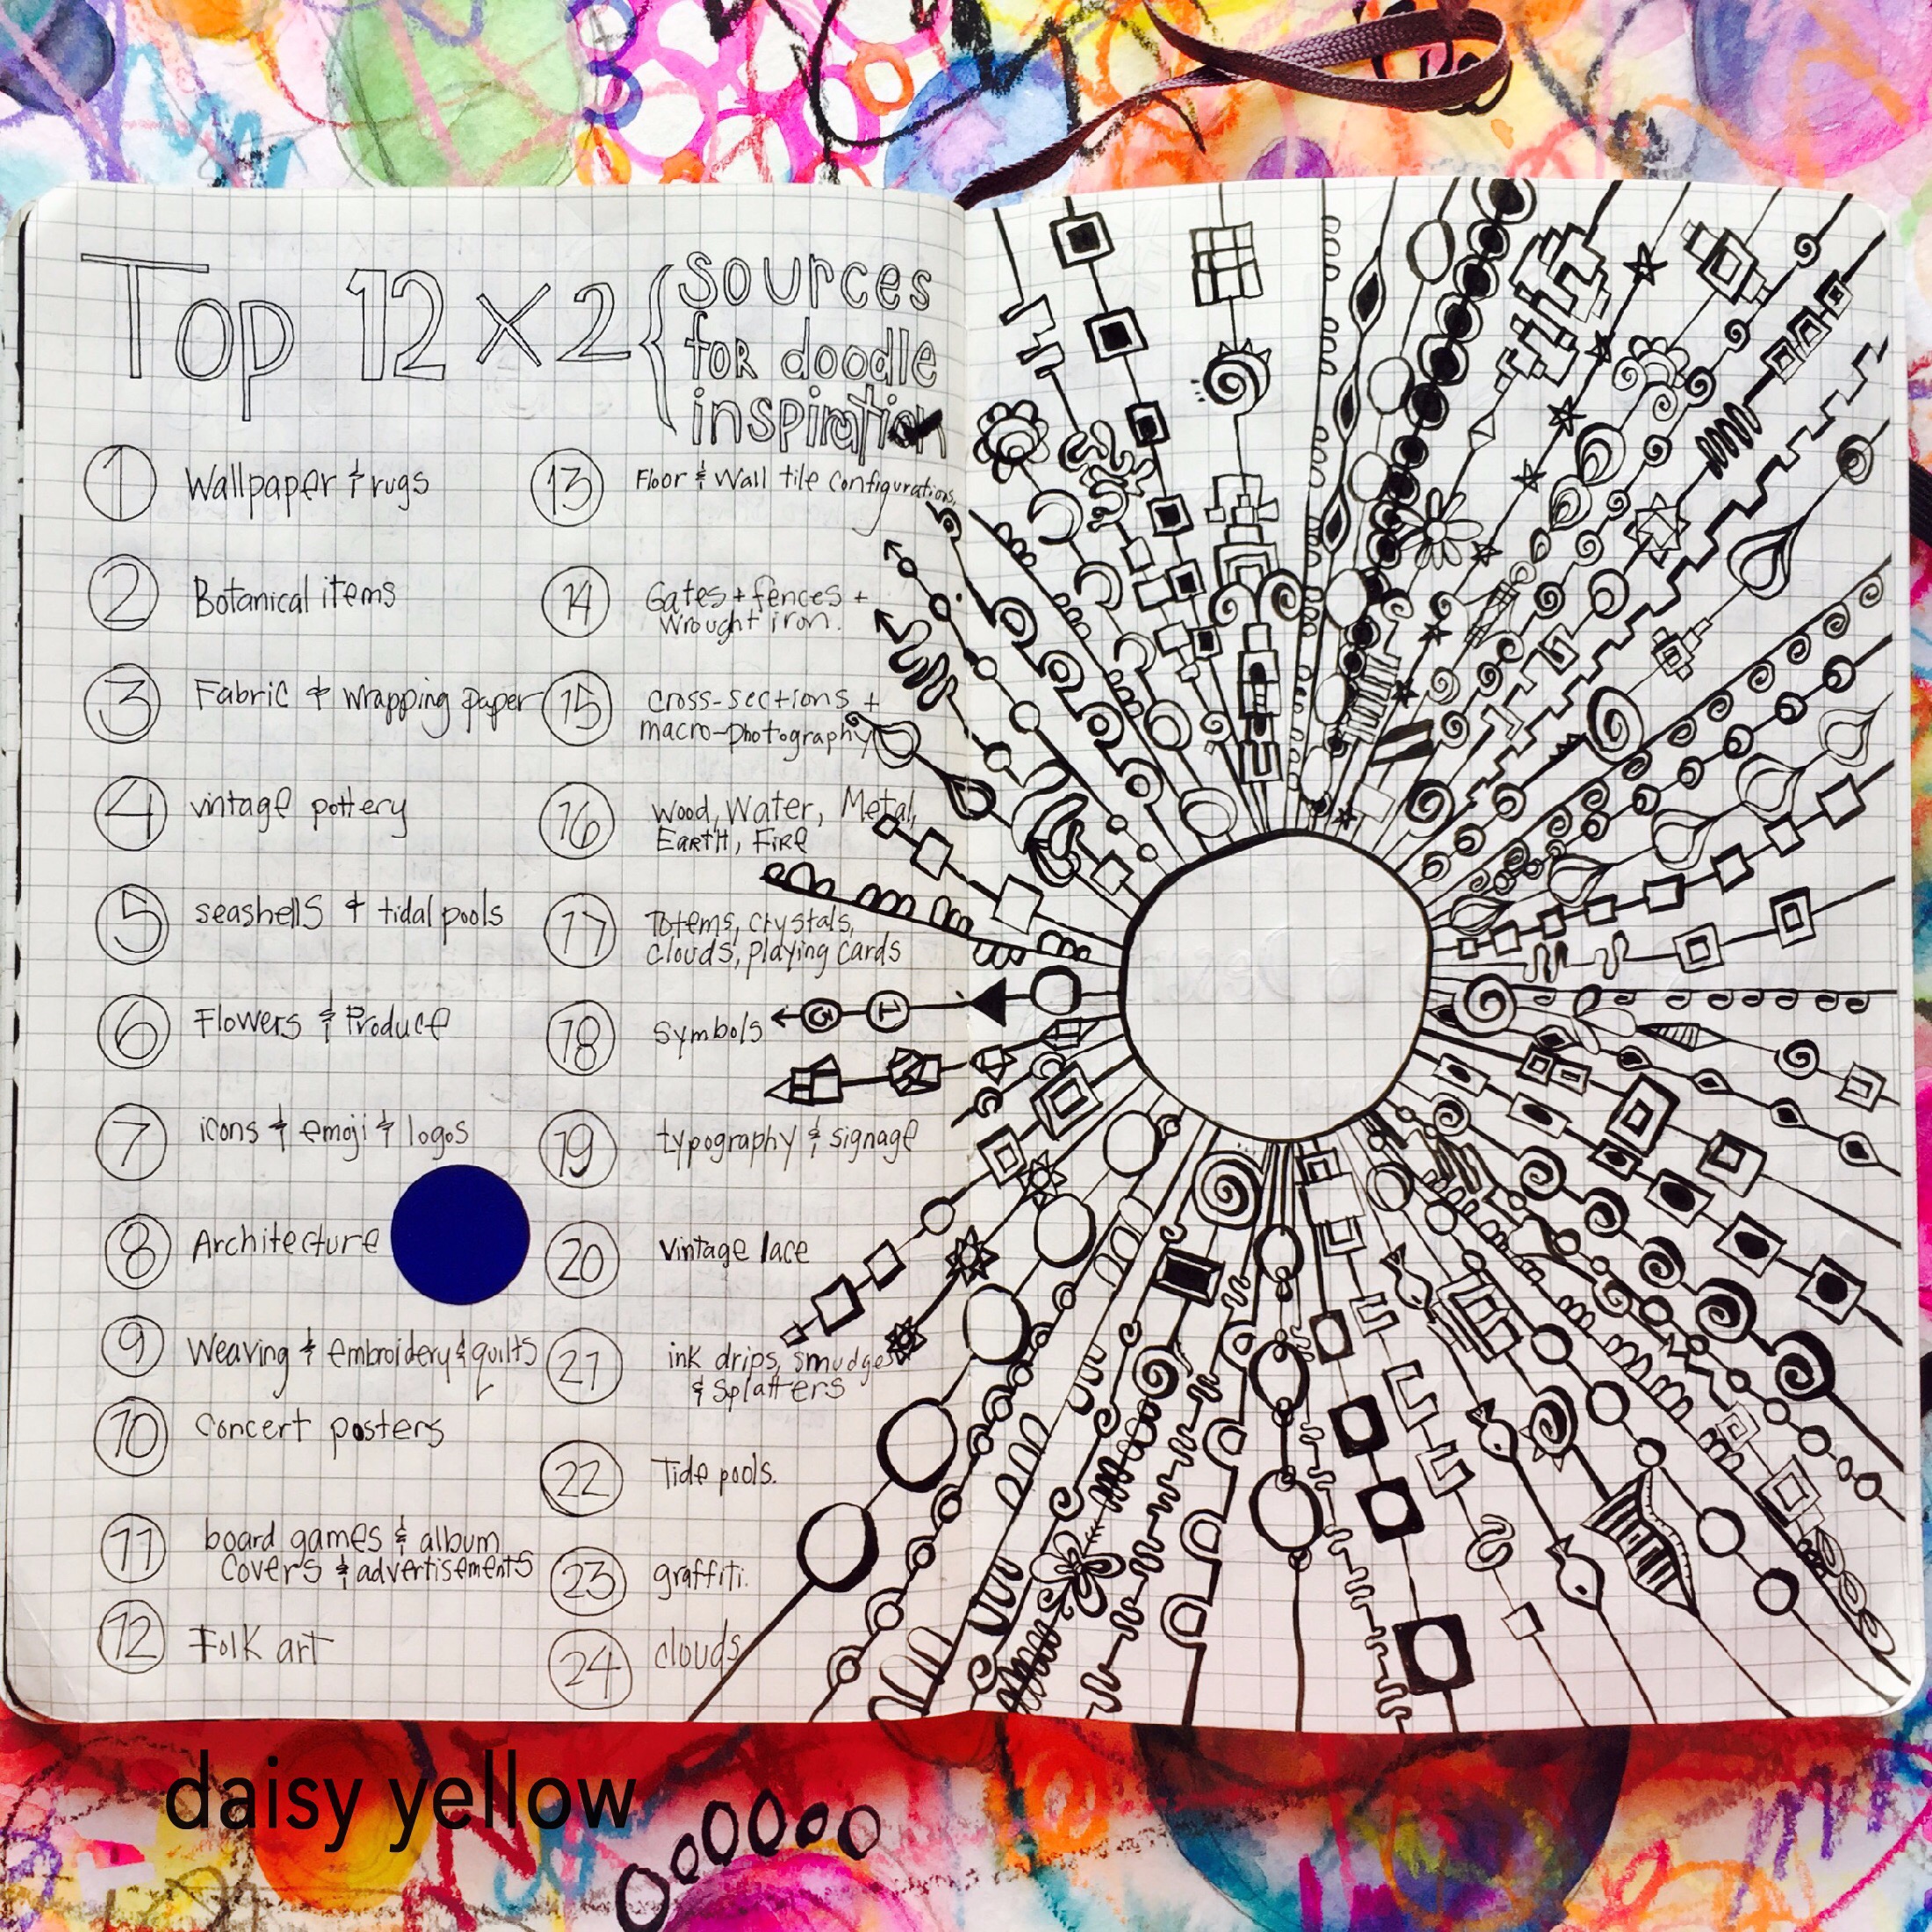 Top 12 x 2 { sources
for doodle
inspiration
1 Wallpaper & rugs
2 Botanical items
3 Fabric & wrapping paper
4 vintage pottery
5 seashells & tidal pools
6 Flowers & Produce
7 icons & emoji & logos
8 Architecture
9 Weaving & embroidery & quilts
10 Concert posters
11 board games & album
covers & advertisements
12 Folk art
13 Floor & Wall tile configurations
14 Gates + fences +
Wrought iron.
15 cross-sections +
macro-photography
16 Wood, Water, Metal,
EARTH, FIRE
17 Totems, crystals,
clouds, playing cards
18 symbols
19 typography & signage
20 Vintage lace
21 ink drips, smudges
& splatters
22 Tide pools.
23 graffiti.
24 clouds
daisy yellow